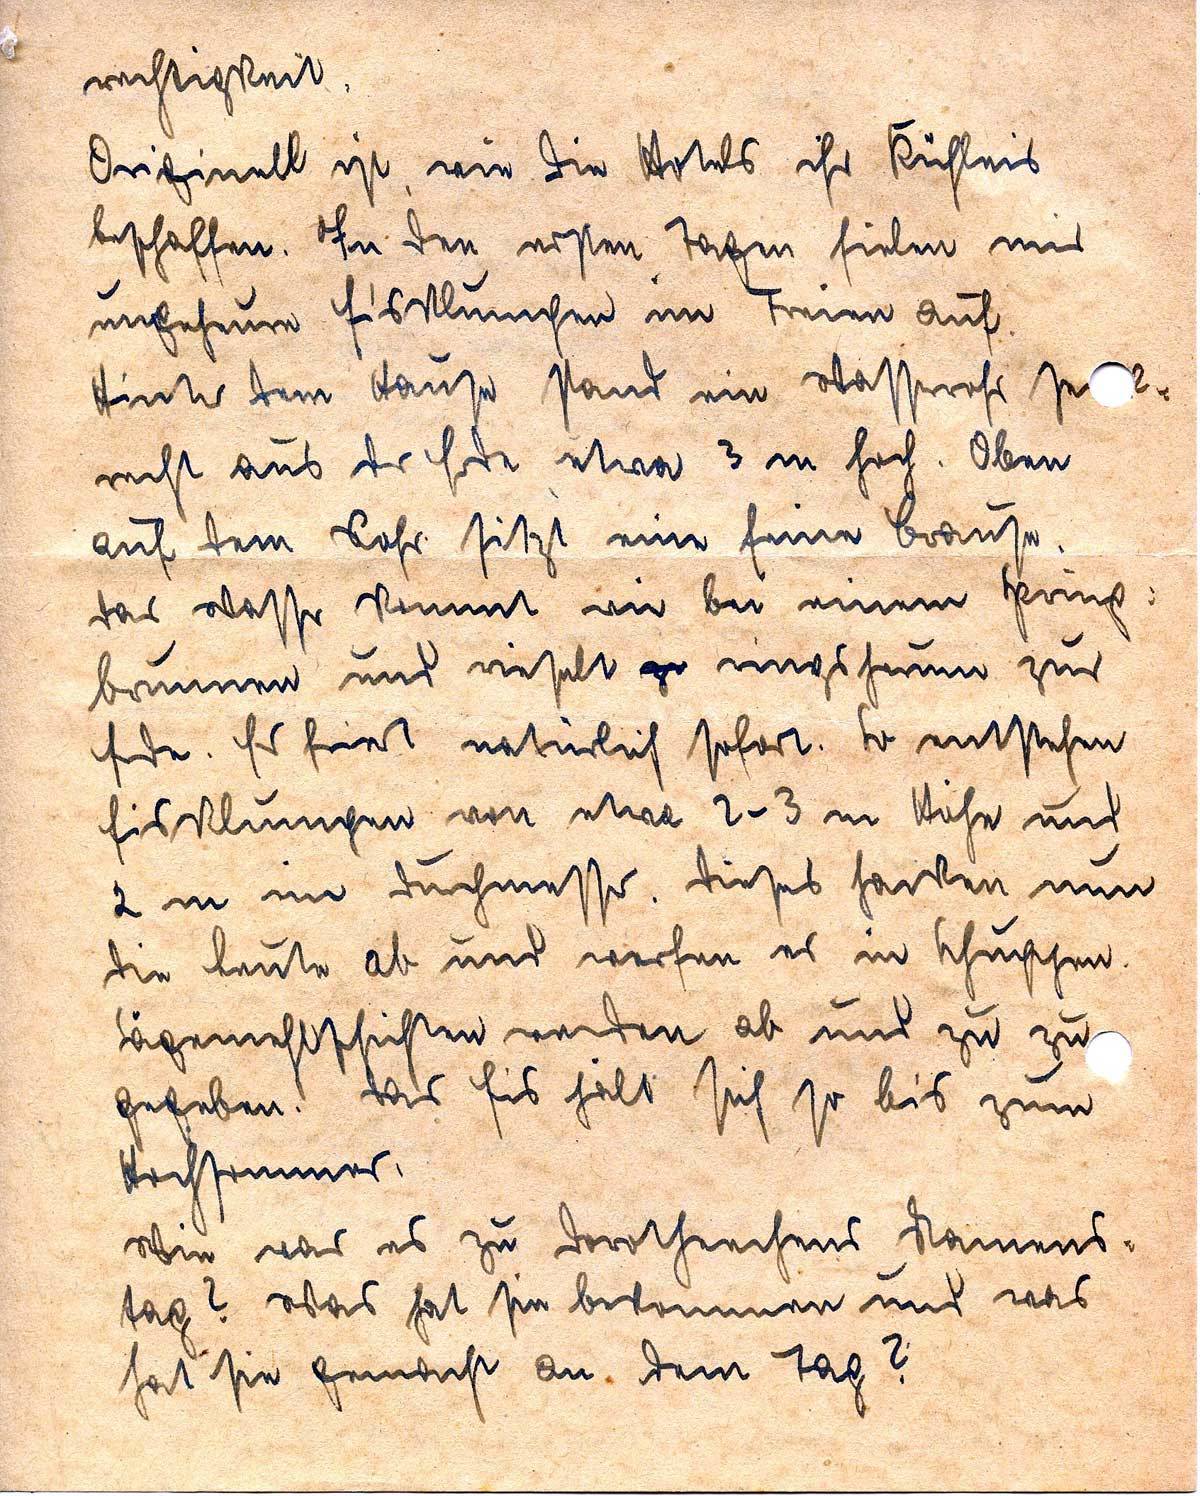 rechtigkeit.
Originell ist, wie die Hotels ihr Kühleis
beschaffen. In den ersten Tagen fielen mir
ungeheure Eisklumpen im Freien auf.
Hinter dem Hause stand ein Wasserrohr senk-
recht aus der Erde etwa 3 m hoch. Oben
auf dem Rohr sitzt eine feine Brause.
Das Wasser kommt wie bei einem Spring-
brunnen und rieselt ringsherum zur
Erde. Er friert natürlich sofort. So entstehen
Eisklumpen von etwa 2-3 m Höhe und
2 m im Durchmesser. Dieses hacken nun
die Leute ab und werfen es in Schuppen.
Sägemehlschichten werden ab und zu zu
gegeben. Das Eis hält sich so bis zum
Hochsommer.
Wie war es zu Dorotheechens Namens-
tag? Was hat sie bekommen und was
hat sie gemacht an dem Tag?